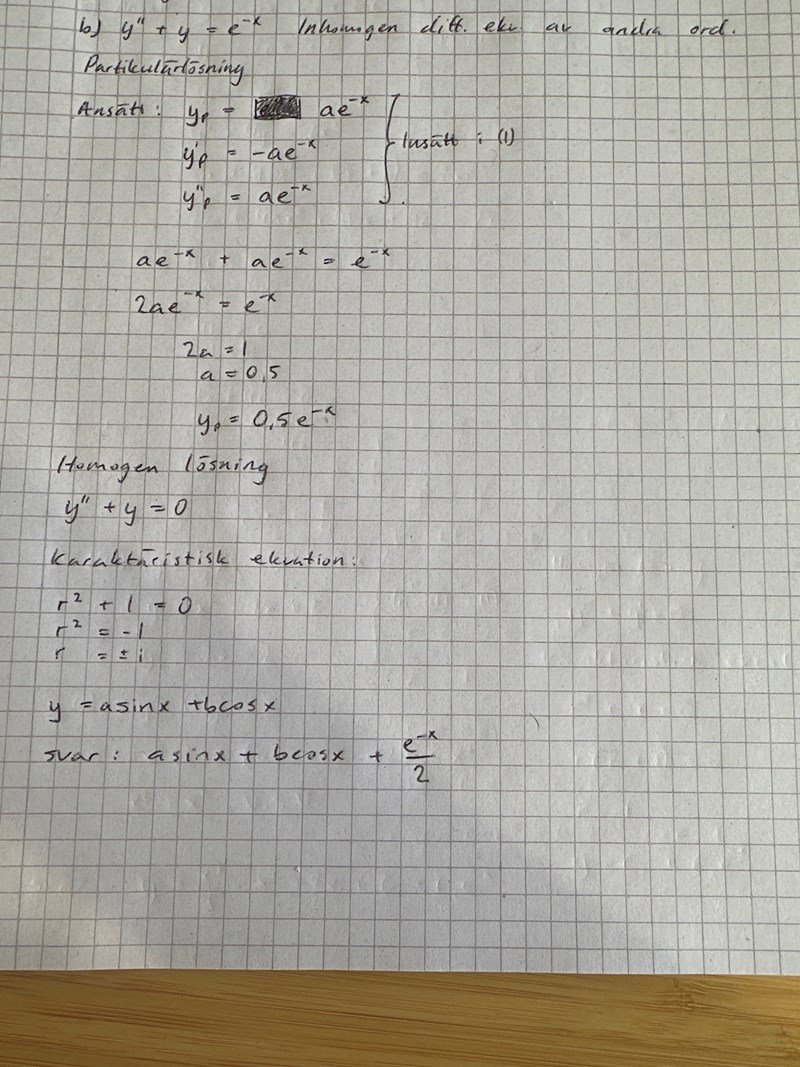 b) y'' + y = e^-x Inhomogen diff. ekv. av andra ord.
Partikulärlösning
Ansätt: yp = ae^-x
y'p = -ae^-x Insätt i (1)
y''p = ae^-x
ae^-x + ae^-x = e^-x
2ae^-x = e^-x
2a = 1
a = 0,5
yp = 0,5e^-x
Homogen lösning
y'' + y = 0
Karaktäristisk ekvation:
r² + 1 = 0
r² = -1
r = ±i
y = asinx + bcosx
svar: asinx + bcosx + e^-x/2